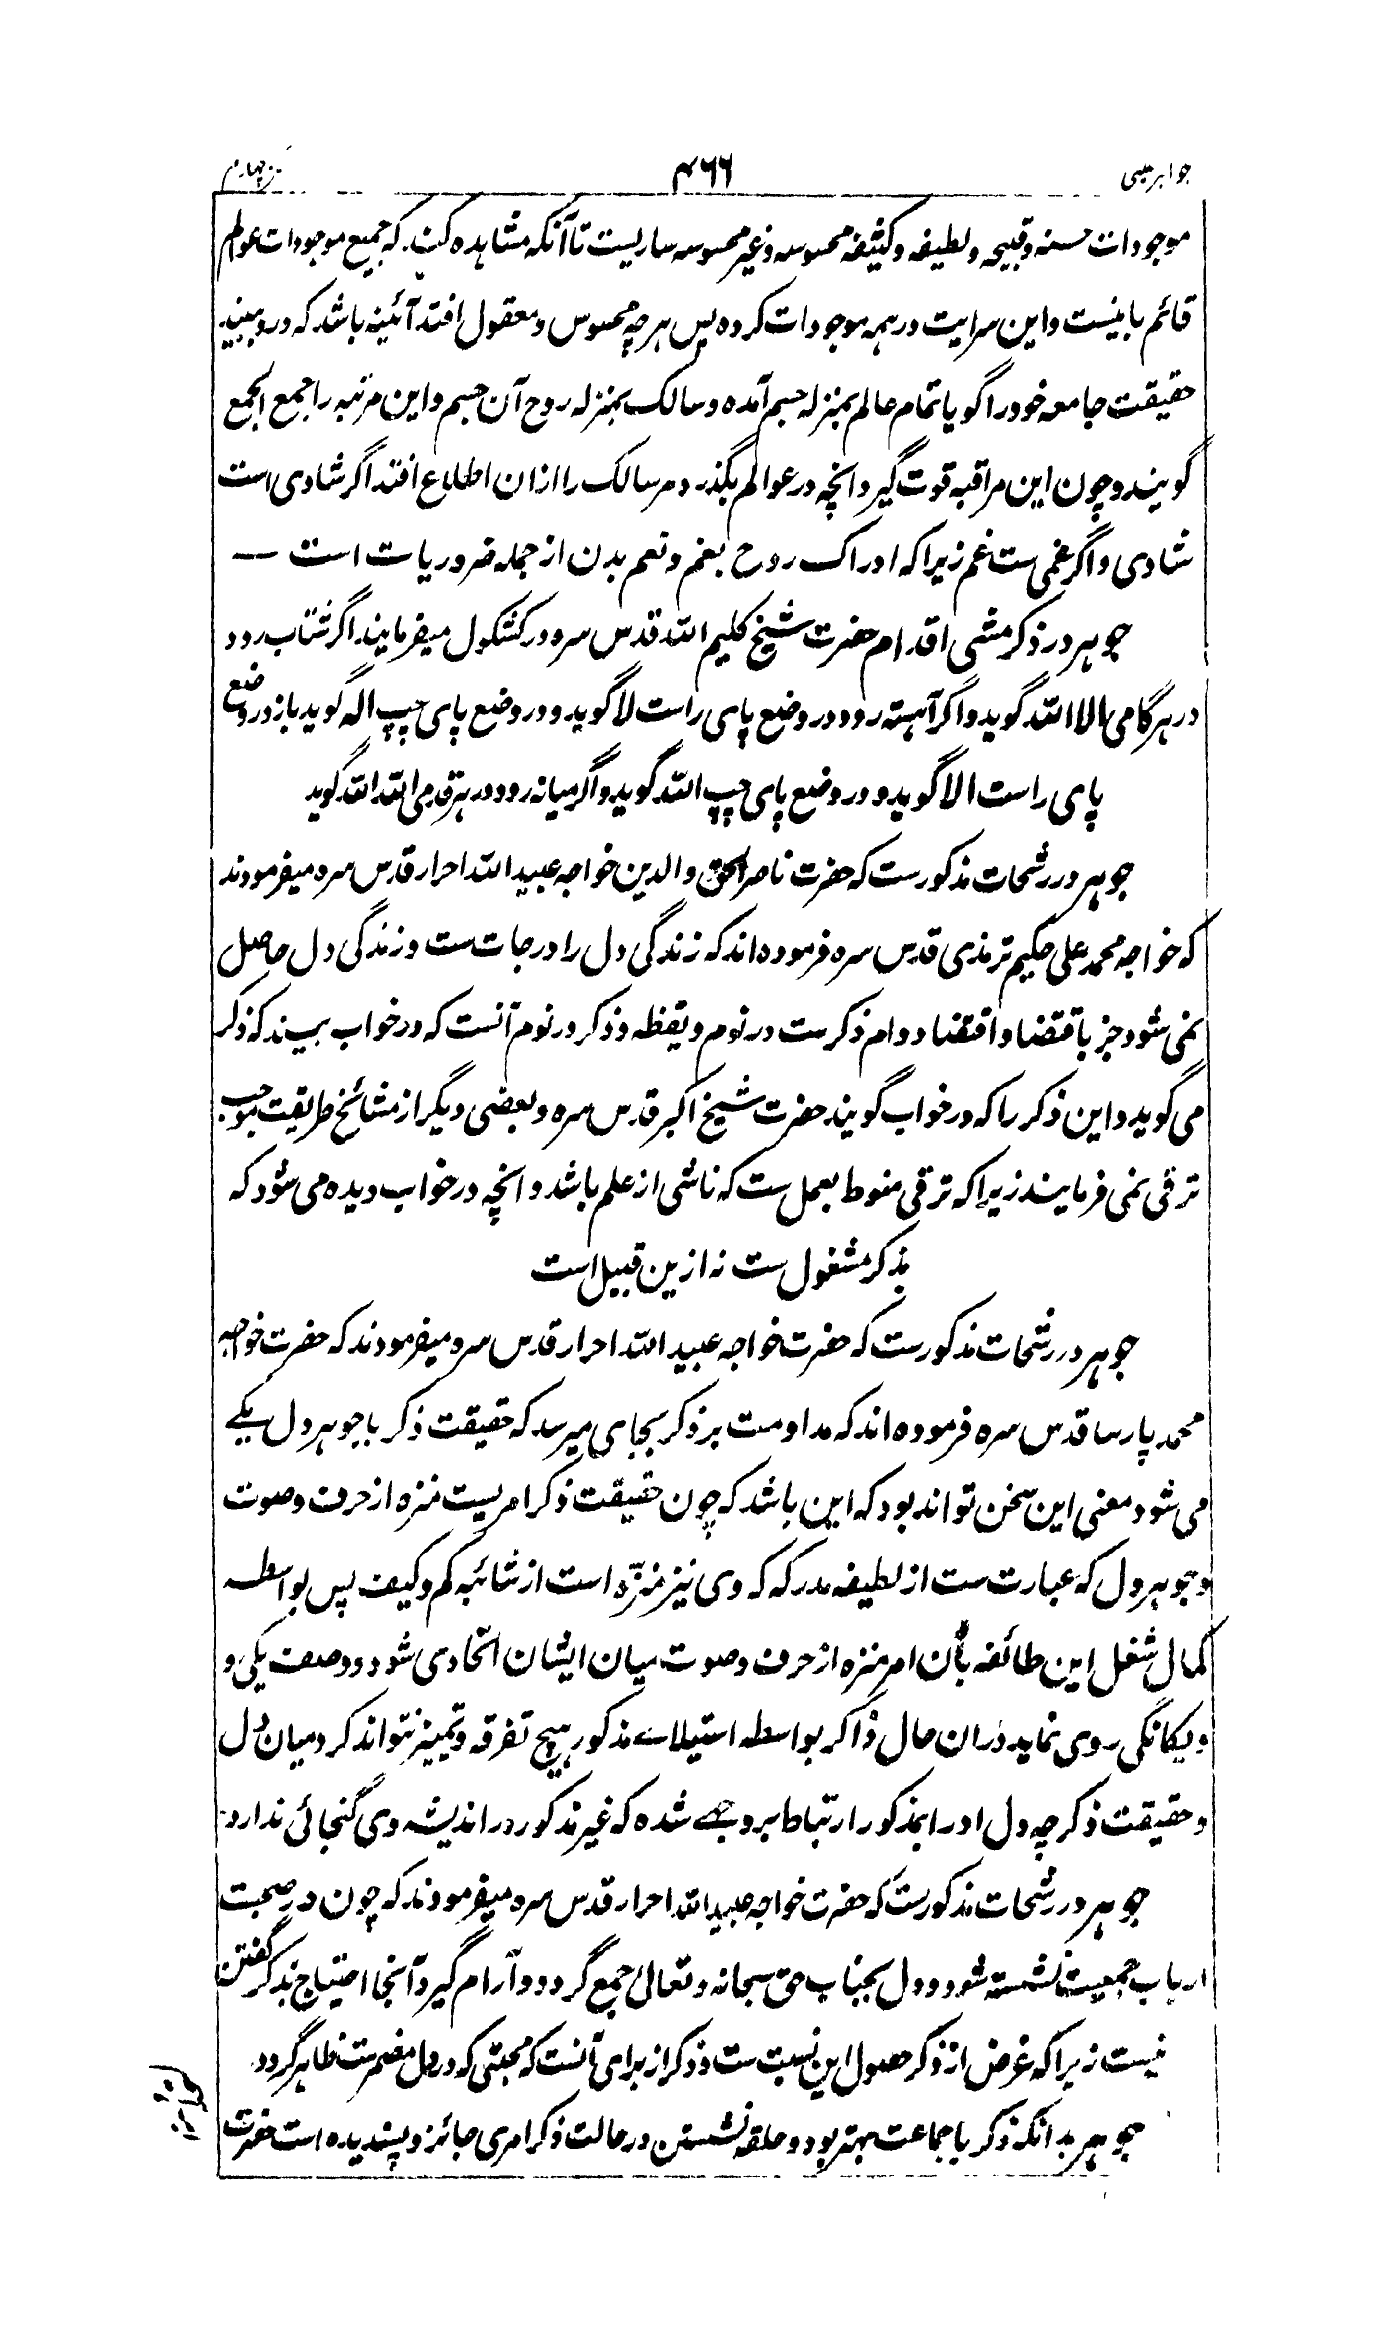 جواهر عیسی ۴۶۶ جز چهارم
موجودات حسنه و قبیحه و لطیفه و کثیفه محسوسه و غیر محسوسه ساریست تا آنکه مشاهده کند که جمیع موجودات عوالم
قائم بانیست و این سرایت در همه موجودات کرده پس هر چه محسوس و معقول افتد آئینه باشد که در و ببیند
حقیقت جامعه خود را گویا تمام عالم بمنزله جسم آمده و سالک بمنزله روح آن جسم و این مرتبه را جمع الجمع
گویند و چون این مراقبه قوت گیرد انچه در عوالم بگذرد مر سالک را ازان اطلاع افتد اگر شادی است
شادی و اگر غمی ست غم زیرا که ادراک روح بغم و نعم بدن از جمله ضروریات است —
جوهر در ذکر مشی اقدام حضرت شیخ کلیم الله قدس سره در کشکول میفرمایند اگر شتاب رود
در هر گامی الا الله گوید و اگر آهسته رود در وضع پای راست لا گوید و در وضع پای چپ اله گوید باز در وضع
پای راست الا گوید و در وضع پای چپ الله گوید و اگر میانه رود در هر قدمی الله الله گوید
جوهر در رشحات مذکورست که حضرت ناصر الحق والدین خواجه عبید الله احرار قدس سره میفرمودند
که خواجه محمد علی حکیم ترمذی قدس سره فرموده اند که زندگی دل را درجات ست و زندگی دل حاصل
نمی شود جز باقتضا و اقتضا دوام ذکرست در نوم و یقظه و ذکر در نوم آنست که در خواب بیند که ذکر
می گوید و این ذکر را که در خواب گویند حضرت شیخ اکبر قدس سره و بعضی دیگر از مشائخ طریقت موجب
ترقی نمی فرمایند زیرا که ترقی منوط بعمل ست که ناشی از علم باشد و انچه در خواب دیده می شود که
بذکر مشغول ست نه ازین قبیل است
جوهر در رشحات مذکورست که حضرت خواجه عبید الله احرار قدس سره میفرمودند که حضرت خواجه
محمد پارسا قدس سره فرموده اند که مداومت بر ذکر بجای میرسد که حقیقت ذکر با جوهر دل یکے
می شود معنی این سخن تواند بود که این باشد که چون حقیقت ذکر امریست منزه از حرف و صوت
و جوهر دل که عبارت ست از لطیفه مدرکه که وی نیز منزّه است از شائبه کم و کیف پس بواسطه
کمال شغل این طائفه بآن امر منزه از حرف و صوت میان ایشان اتحادی شود و وصف یکی و
و یکانگی روی نماید دران حال ذاکر بواسطه استیلاے مذکور هیچ تفرقه و تمییز نتواند کرد میان دل
و حقیقت ذکر چه دل او را بمذکور ارتباط بر وجهے شده که غیر مذکور در اندیشه وی گنجائی ندارد
جوهر در رشحات مذکورست که حضرت خواجه عبید الله احرار قدس سره میفرمودند که چون در صحبت
ارباب جمعیت نشسته شود و دل بجناب حق سبحانه و تعالی جمع گردد و آرام گیرد آنجا احتیاج بذکر گفتن
نیست زیرا که غرض از ذکر حصول این نسبت ست و ذکر از برای آنست که محبتی که در دل مضمرست ظاهر گردد
جوهر بدانکه ذکر با جماعت بهتر بود و حلقه نشستن در حالت ذکر امری جائز و پسندیده است حضرت